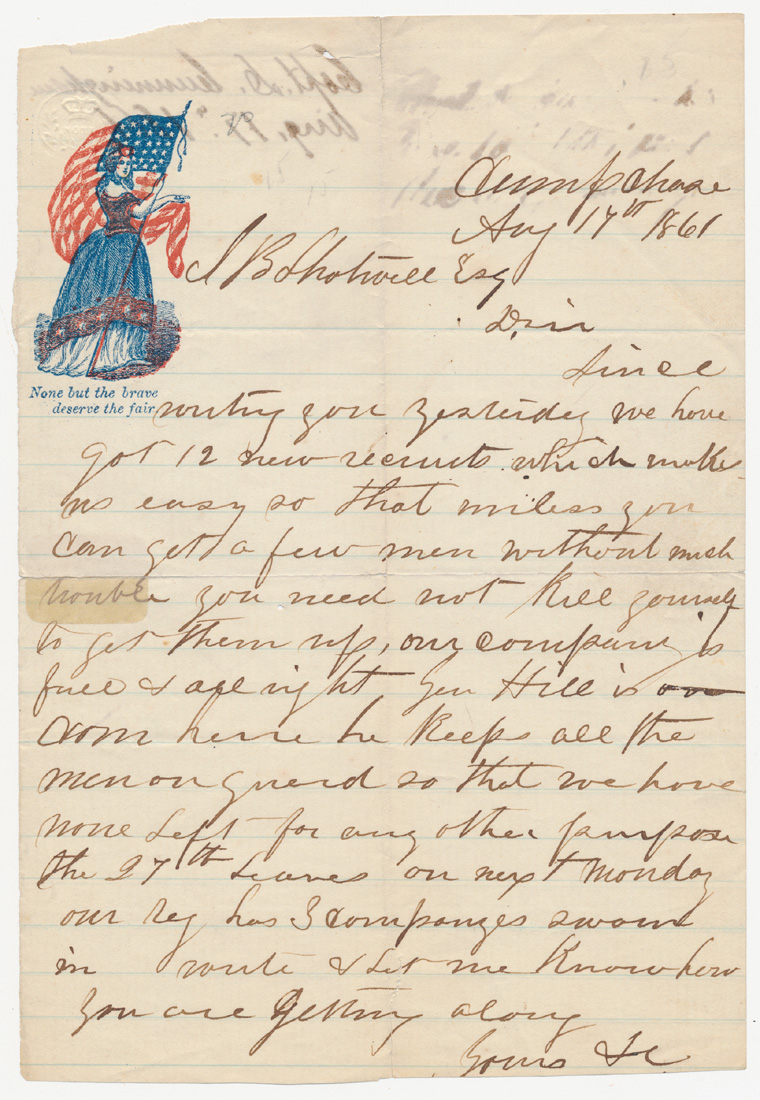 Camp Chase
Aug 17th 1861
S B Shotwell Esq
D. Sir
Since
None but the brave
deserve the fair
writing you yesterday we have
got 12 new recruits which makes
us easy so that unless you
can get a few men without much
trouble you need not kill yourself
to get them up, our company is
full & all right Gen Hill is on
com here he keeps all the
men on guard so that we have
none left for any other purpose
the 27th leaves on next Monday
our reg has 3 companyes sworn
in write & let me know how
you are getting along
Yours &c
Capt. D. Cunningham
Aug. 17.